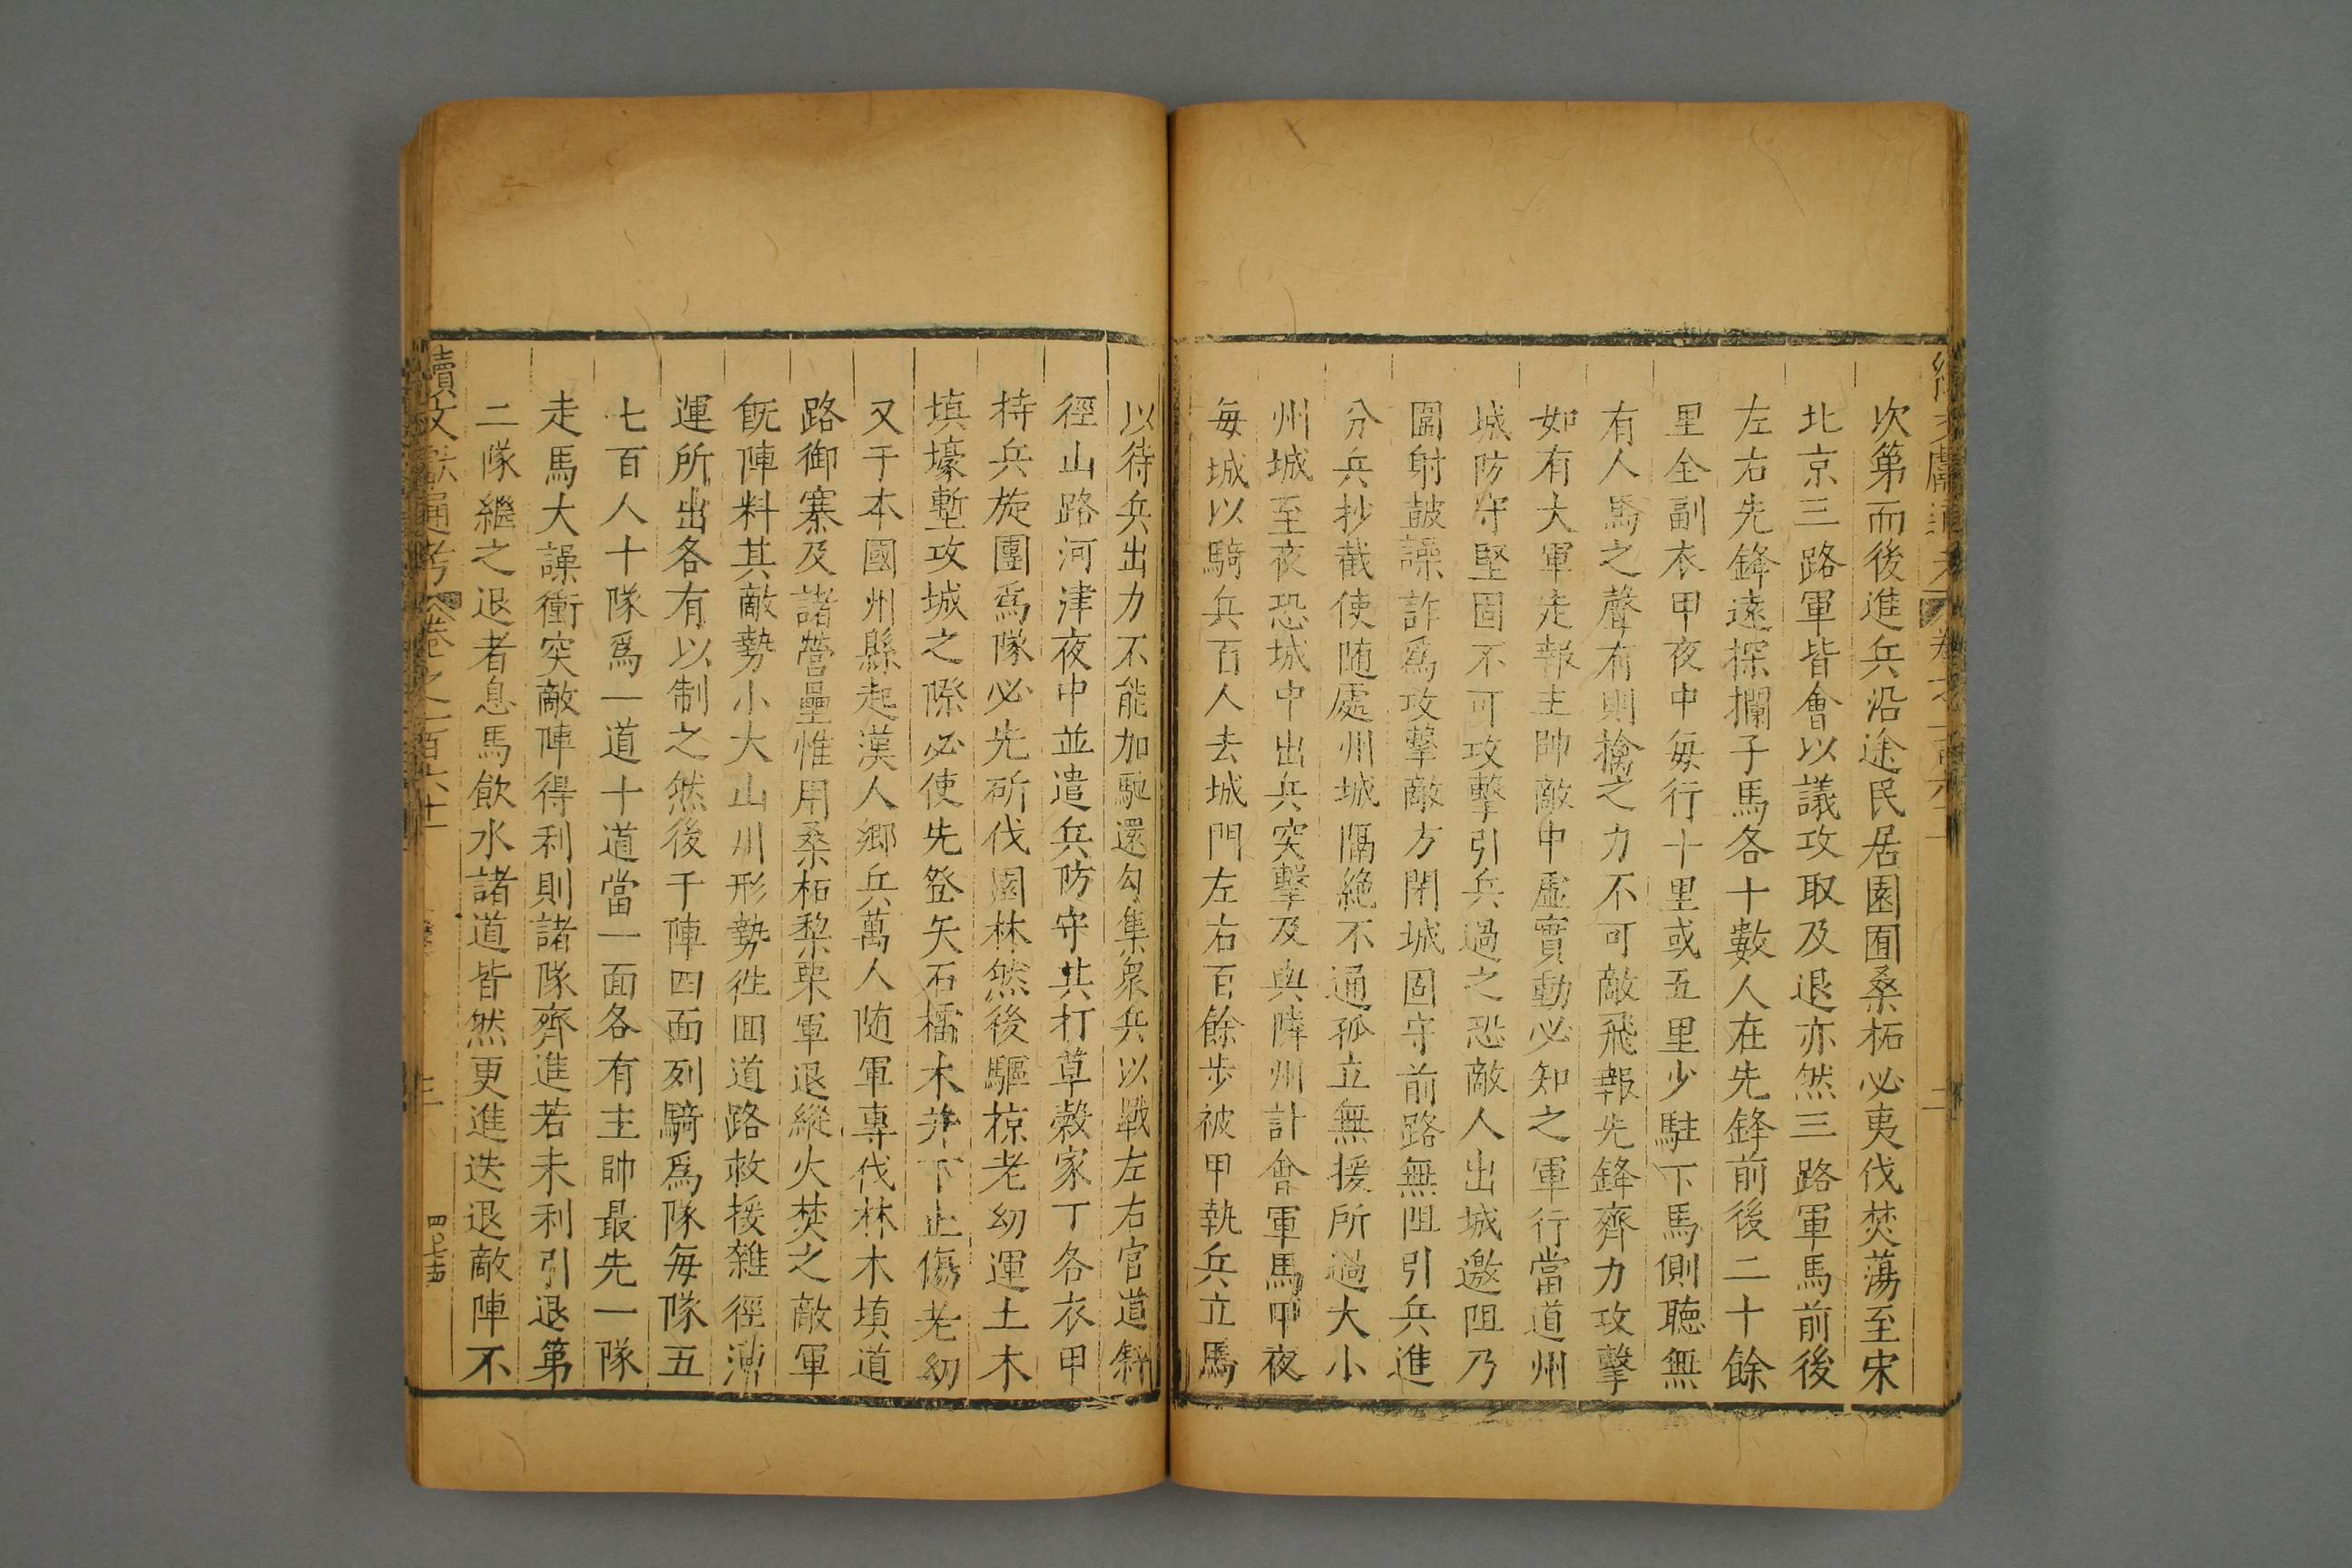 次第而後進兵沿途民居園囿桑柘必夷伐焚蕩至宋
北京三路軍皆會以議攻取及退亦然三路軍馬前後
左右先鋒遠探攔子馬各十數人在先鋒前後二十餘
里全副衣甲夜中每行十里或五里少駐下馬側聽無
有人馬之聲有則擒之力不可敵飛報先鋒齊力攻擊
如有大軍走報主帥敵中虛實動必知之軍行當道州
城防守堅固不可攻擊引兵過之恐敵人出城邀阻乃
圍射鼓譟詐爲攻擊敵方閉城固守前路無阻引兵進
分兵抄截使随處州城隔絶不通孤立無援所過大小
州城至夜恐城中出兵突擊及與隣州計會軍馬甲夜
每城以騎兵百人去城門左右百餘步被甲執兵立馬
以待兵出力不能加馳還勾集衆兵以戰左右官道斜
徑山路河津夜中並遣兵防守共打草穀家丁各衣甲
持兵旋團爲隊必先斫伐園林然後驅掠老幼運土木
填壕塹攻城之際必使先登矢石檑木并下止傷老幼
又于本國州縣起漢人鄉兵萬人随軍專伐林木填道
路御寨及諸營壘惟用桑柘梨栗軍退縱火焚之敵軍
旣陣料其敵勢小大山川形勢徃囬道路救援雜徑漕
運所出各有以制之然後于陣四面列騎爲隊每隊五
七百人十隊爲一道十道當一面各有主帥最先一隊
走馬大譟衝突敵陣得利則諸隊齊進若未利引退第
二隊繼之退者息馬飲水諸道皆然更進迭退敵陣不
續文獻通考 卷之一百六十